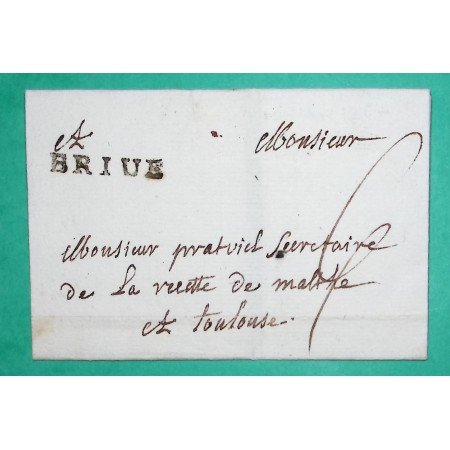 A Monsieur
BRIUE
Monsieur pratviel Secretaire
de la recette de malthe
A toulouse.